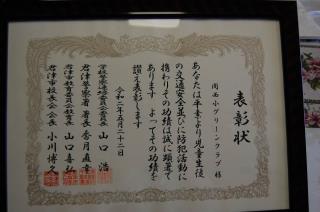 表彰状
周西小グリーンクラブ 様
あなたは平素より児童生徒
の交通安全並びに防犯活動に
携わりその功績は誠に顕著で
あります よってその功績を
讃え表彰します
令和二年五月二十二日
学校警察連絡委員会委員長 山口 浩
君津警察署 署長 香月直幸
君津市教育委員会教育長 山口喜弘
君津市校長会会長 小川博久